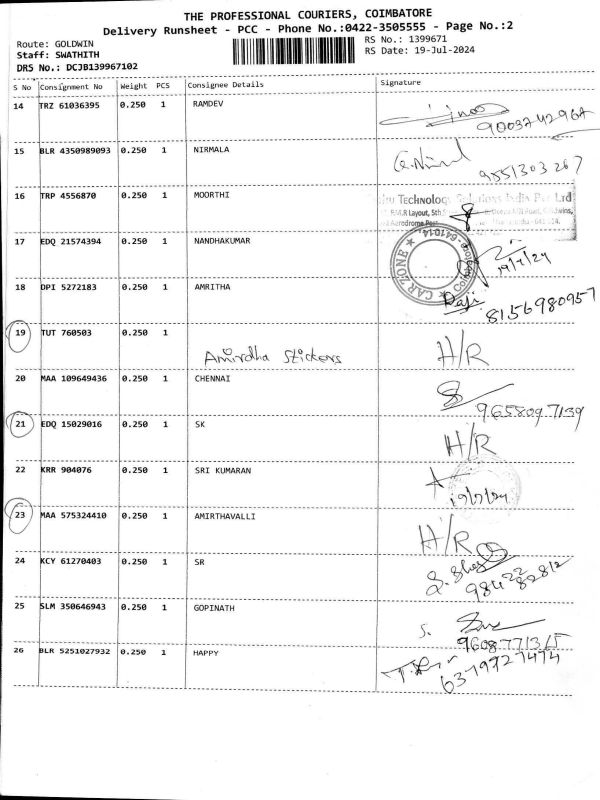 THE PROFESSIONAL COURIERS, COIMBATORE
Delivery Runsheet - PCC - Phone No.:0422-3505555 - Page No.:2
Route: GOLDWIN
RS No.: 1399671
Staff: SWATHITH
RS Date: 19-Jul-2024
DRS No.: DCJB139967102
S No Consignment No Weight PCS Consignee Details Signature
14 TRZ 61036395 0.250 1 RAMDEV
9003742967
15 BLR 4350989093 0.250 1 NIRMALA
9551303267
16 TRP 4556870 0.250 1 MOORTHI
Technology Solutions India Pvt Ltd
17 EDQ 21574394 0.250 1 NANDHAKUMAR
CAR ZONE
19/7/24
18 DPI 5272183 0.250 1 AMRITHA
Raji
8156980957
19 TUT 760503 0.250 1 Amirdha Stickers H/R
20 MAA 109649436 0.250 1 CHENNAI
9658097139
21 EDQ 15029016 0.250 1 SK H/R
22 KRR 904076 0.250 1 SRI KUMARAN
19/7/24
23 MAA 575324410 0.250 1 AMIRTHAVALLI H/R
24 KCY 61270403 0.250 1 SR
98422 82812
25 SLM 350646943 0.250 1 GOPINATH
9608771315
26 BLR 5251027932 0.250 1 HAPPY
6379727474